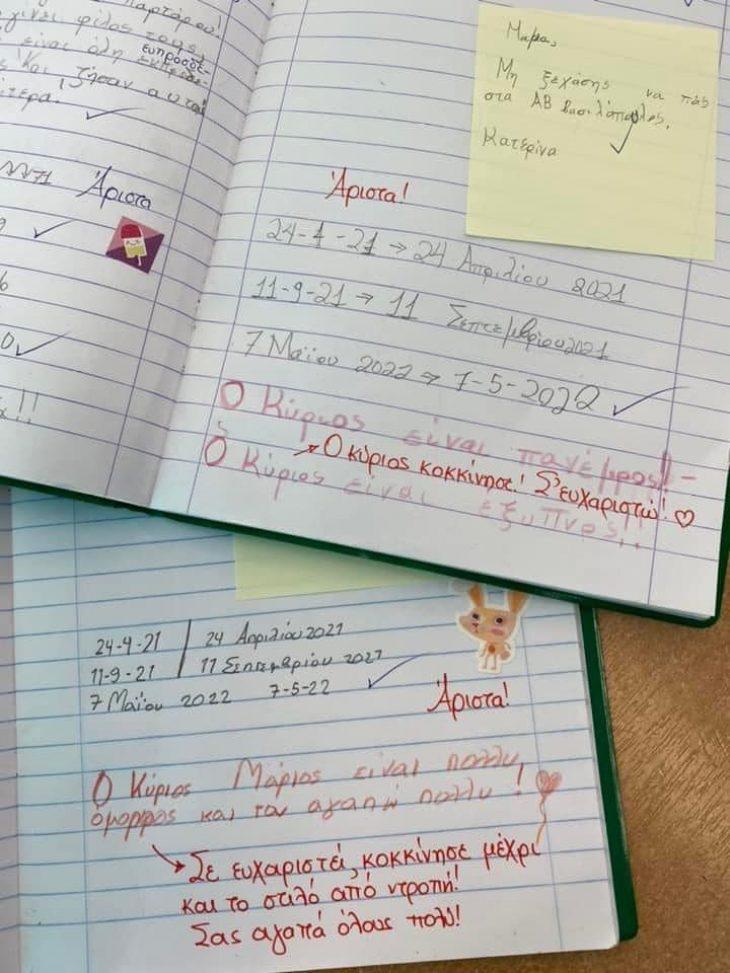 γίνει φίλος τους,
είναι όλη ευπρόσδε-
και ζήσαν αυτοί
Άριστα
Μαμα,
Μη ξεχάσης να πάς
στα ΑΒ βασιλόπουλος.
Κατερίνα
Άριστα!
24-4-21 → 24 Απριλίου 2021
11-9-21 → 11 Σεπτεμβρίου 2021
7 Μαΐου 2022 → 7-5-2022
Ο Κύριος είναι πανέμρος!!
→ Ο κύριος κοκκίνησε! Σ'ευχαριστώ! ♡
Ο Κύριος είναι εξυπνος!!
24-4-21 | 24 Απριλίου 2021
11-9-21 | 11 Σεπτεμβρίου 2021
7 Μαΐου 2022 7-5-22
Άριστα!
Ο Κύριος Μάριος είναι πολλυ
όμορρος και τον αγαπώ πολλυ!
→ Σε ευχαριστεί, κοκκίνησε μέχρι
και το στιλό από ντροπή!
Σας αγαπά όλους πολύ!